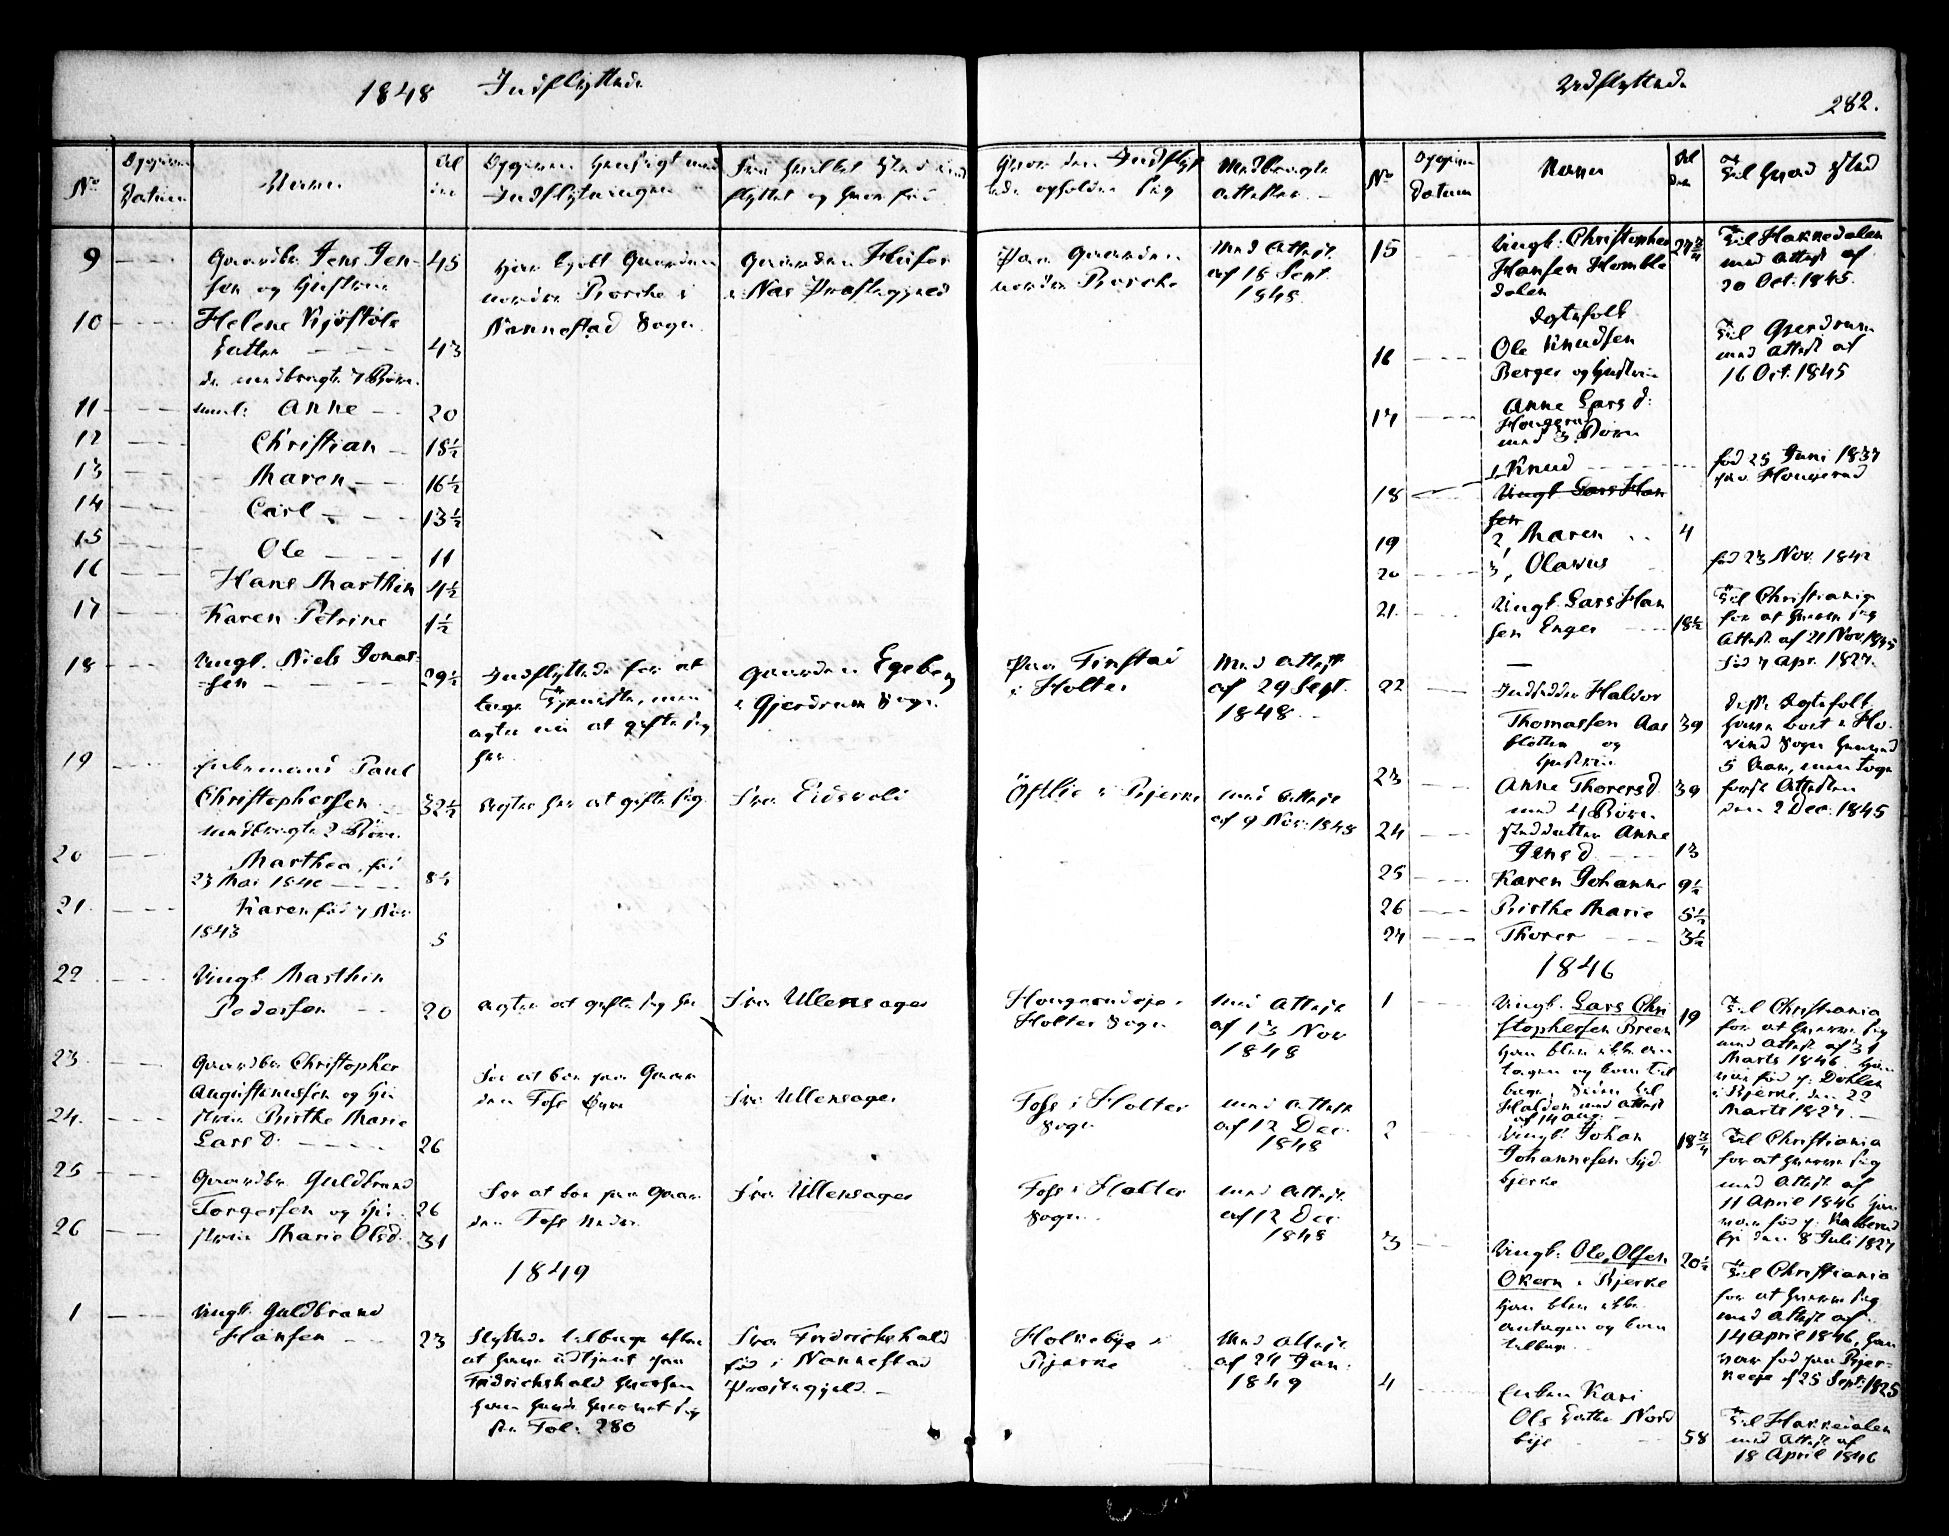 1848 Indflyttede
Udflyttede
282.
No
Datum
Navne
Al
der
Indflytningen
flyttet og hvor fød
Hvor den Indflyt
tede opholder sig
Medbragte
attester.
No
Datum
Navne
Al
der
Til hvad Sted
9
Gaardbr. Jens Jen-
sen og Hustrue
45
nordre
Nannestad Sogn.
Gaarden
i Næs Præstegjæld
Paa Gaarden
nordre
med Attest
af 15 Sept.
1848
10
Helene
Datter
43
de medbragte 7 Børn.
11
Anne
20
12
Christian
18½
13
Maren
16½
14
Carl
13½
15
Ole
11
16
Hans Marthin
4½
17
Karen Petrine
1½
18
Ungk. Niels Jonas-
sen
29½
Indflyttede for at
tage Tjeneste, men
agter nu at gifte sig
her.
Gaarden Egeberg
i Gjerdrum Sogn.
Paa Finstad
i Holter
med Attest
af 29 Sept.
1848
19
Enkemand Paul
Christophersen
32½
medbragte 2 Børn.
agter her at gifte sig
fra Eidsvold
Østlie i Bjerke
med Attest
af 9 Nov. 1848
20
Marthea, fød
23 Mai 1840
8½
21
Karen fød 7 Nov
1843
5
22
Ungk. Marthin
Pedersen
20
agter at gifte sig her
fra Ullensager
Holter Sogn
med Attest
af 13 Nov
1848
23
Gaardbr. Christopher
Augustinussen og Hu
24.
strue Birthe Marie
Lars D.
26
For at boe paa Gaar
den Foss Øvre
fra Ullensager
Foss i Holter
Sogn
med Attest
af 12 Dec.
1848
25
Gaardbr. Guldbrand
Torgersen og Hu-
26
26
strue Marie Olsd.
31
For at boe paa Gaar
den Foss nedre
fra Ullensager
Foss i Holter
Sogn
med Attest
af 12 Dec
1848
1849
1
Ungk. Guldbrand
Hansen
23
Flyttede tilbage efter
at have udtjent paa
Fredrichshald hvorhen
han havde hvervet sig
se Fol: 280
fra Fredrichshald
fød i Nannestad
Præstegjeld.
Holkebye i
Bjerke
med Attest
af 24 Jan.
1849
15
Ungk. Christopher
Hansen Homble
dalen
Til Hakkedalen
med Attest af
20 Oct. 1845.
Ægtefolk
16
Ole Knudsen
Berger og Hustrue
Til Gjerdrum
med Attest af
16 Oct. 1845
17
Anne Lars d.
Hougerud
med 3 Børn
1, Knud
fød 25 Juni 1837
paa Hougerud
18
Ungk. Lars Han
sen
19
2, Maren
4
20
3, Olavus
fød 23 Nov. 1842
21.
Ungk. Lars Han
sen Enger
18½
Til Christiania
for at hverve sig
Attest af 21 Nov 1845
fød 7 Apr. 1827.
22
Indsidder Halvor
Thomassen Aas
39
og
Hustrue
disse Ægtefolk
have boet i Ho-
vind Sogn henved
5 Aar, men toge
først Attesten
den 2 Dec. 1845
23
Anne Thorersd
39
med 4 Børn
24
Steddatter Anne
Jens d.
13
25
Karen Johanne
9½
26
Birthe Marie
5½
27
Thorer
3½
1846
1
Ungk. Lars Chri
stophersen Breen
19
han blev ikke an
tagen og kom til
bage. Siden til
Halden med Attest
af 14 Aug.
Til Christiania
for at hverve sig
med Attest af 31
Marts 1846. han
var fød p. Dohlen
i Bjerke den 22
Marts 1827.
2
Ungk. Johan
Johannesen Syd
bjerke
18¾
Til Christiania
for at hverve sig
med Attest af
11 April 1846 han
var fød p.
den 8 Juli 1827
3
Ungk. Ole Olsen
Okern i Bjerke
20½
han blev ikke
antagen og kom
tilbage.
Til Christiania
for at hverve sig
med Attest af
14 April 1846, han
var fød paa Bjer-
keeje d 25 Sept. 1825
4
Enken Kari
Ols Datter Nord
bye
58
Til Hakkedalen
med Attest af
18 April 1846